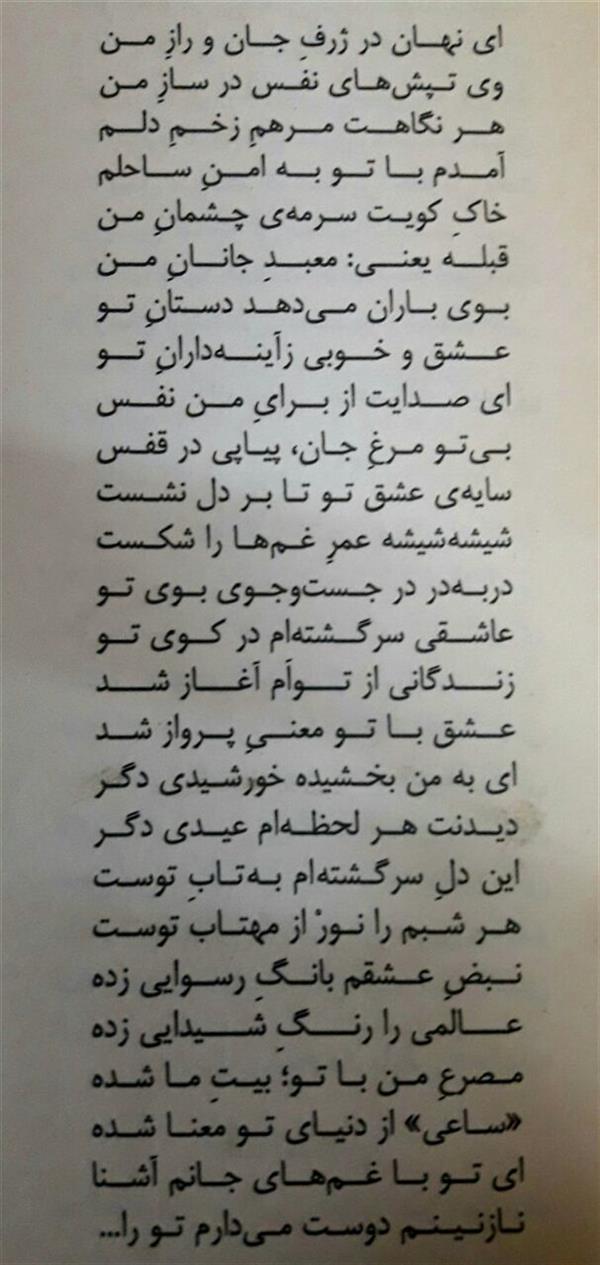 ای نهان در ژرفِ جان و رازِ من
وی تپش‌های نفس در سازِ من
هر نگاهت مرهمِ زخمِ دلم
آمدم با تو به امنِ ساحلم
خاکِ کویت سرمه‌ی چشمانِ من
قبله یعنی: معبدِ جانانِ من
بوی باران می‌دهد دستانِ تو
عشق و خوبی زآینه‌دارانِ تو
ای صدایت از برایِ من نفس
بی‌تو مرغِ جان، پیاپی در قفس
سایه‌ی عشق تو تا بر دل نشست
شیشه‌شیشه عمرِ غم‌ها را شکست
دربه‌در در جست‌وجوی بوی تو
عاشقی سرگشته‌ام در کوی تو
زندگانی از توأم آغاز شد
عشق با تو معنیِ پرواز شد
ای به من بخشیده خورشیدی دگر
دیدنت هر لحظه‌ام عیدی دگر
این دلِ سرگشته‌ام به‌تابِ توست
هر شبم را نورْ از مهتاب توست
نبضِ عشقم بانگِ رسوایی زده
عالمی را رنگِ شیدایی زده
مصرعِ من با تو؛ بیتِ ما شده
«ساعی» از دنیای تو معنا شده
ای تو با غم‌های جانم آشنا
نازنینم دوست می‌دارم تو را...